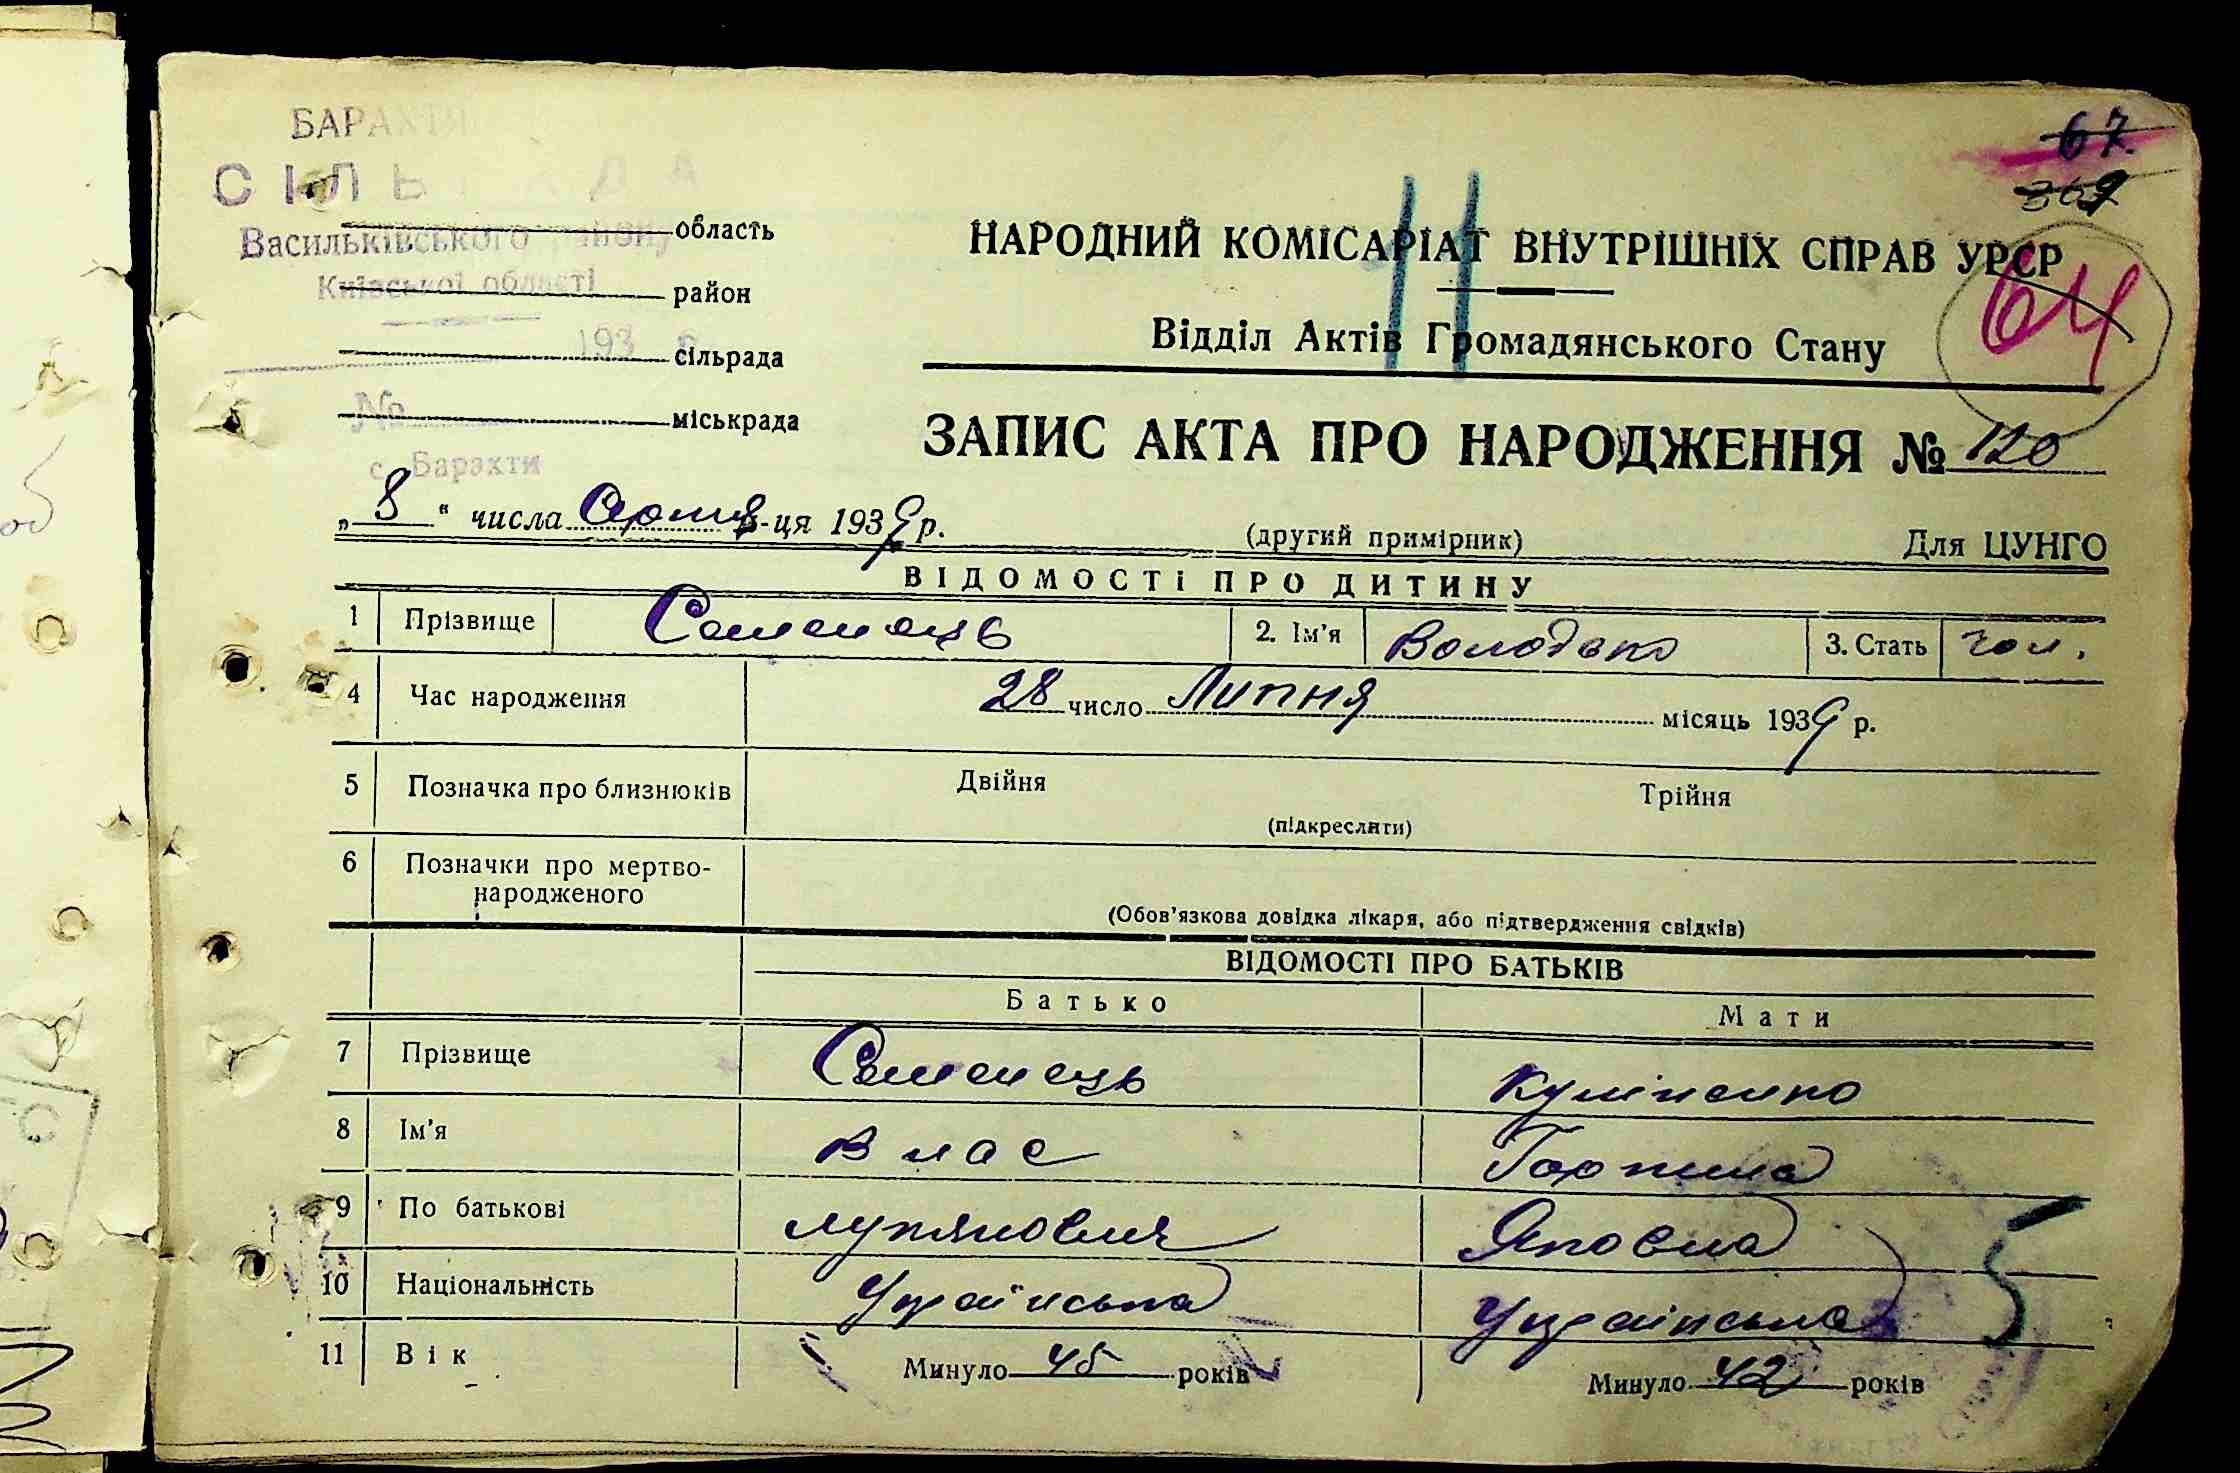 БАРАХТЯ
СІЛЬ АДА
Васильківського району
Київської області
193
№
с. Барахти
область
район
сільрада
міськрада
67.
369
64
НАРОДНИЙ КОМІСАРІАТ ВНУТРІШНІХ СПРАВ УРСР
Відділ Актів Громадянського Стану
ЗАПИС АКТА ПРО НАРОДЖЕННЯ № 120
„8“ числа Серпня-ця 1939 р.
(другий примірник)
Для ЦУНГО
ВІДОМОСТІ ПРО ДИТИНУ
1 Прізвище Семенець 2. Ім'я Володько 3. Стать чол.
4 Час народження 28 число Липня місяць 1939 р.
5 Позначка про близнюків Двійня Трійня
(підкреслити)
6 Позначки про мертво-
народженого
(Обов'язкова довідка лікаря, або підтвердження свідків)
ВІДОМОСТІ ПРО БАТЬКІВ
Батько Мати
7 Прізвище Семенець
8 Ім'я Влас Горпина
9 По батькові
10 Національність Українська Українська
11 Вік Минуло 45 років Минуло 42 років
5